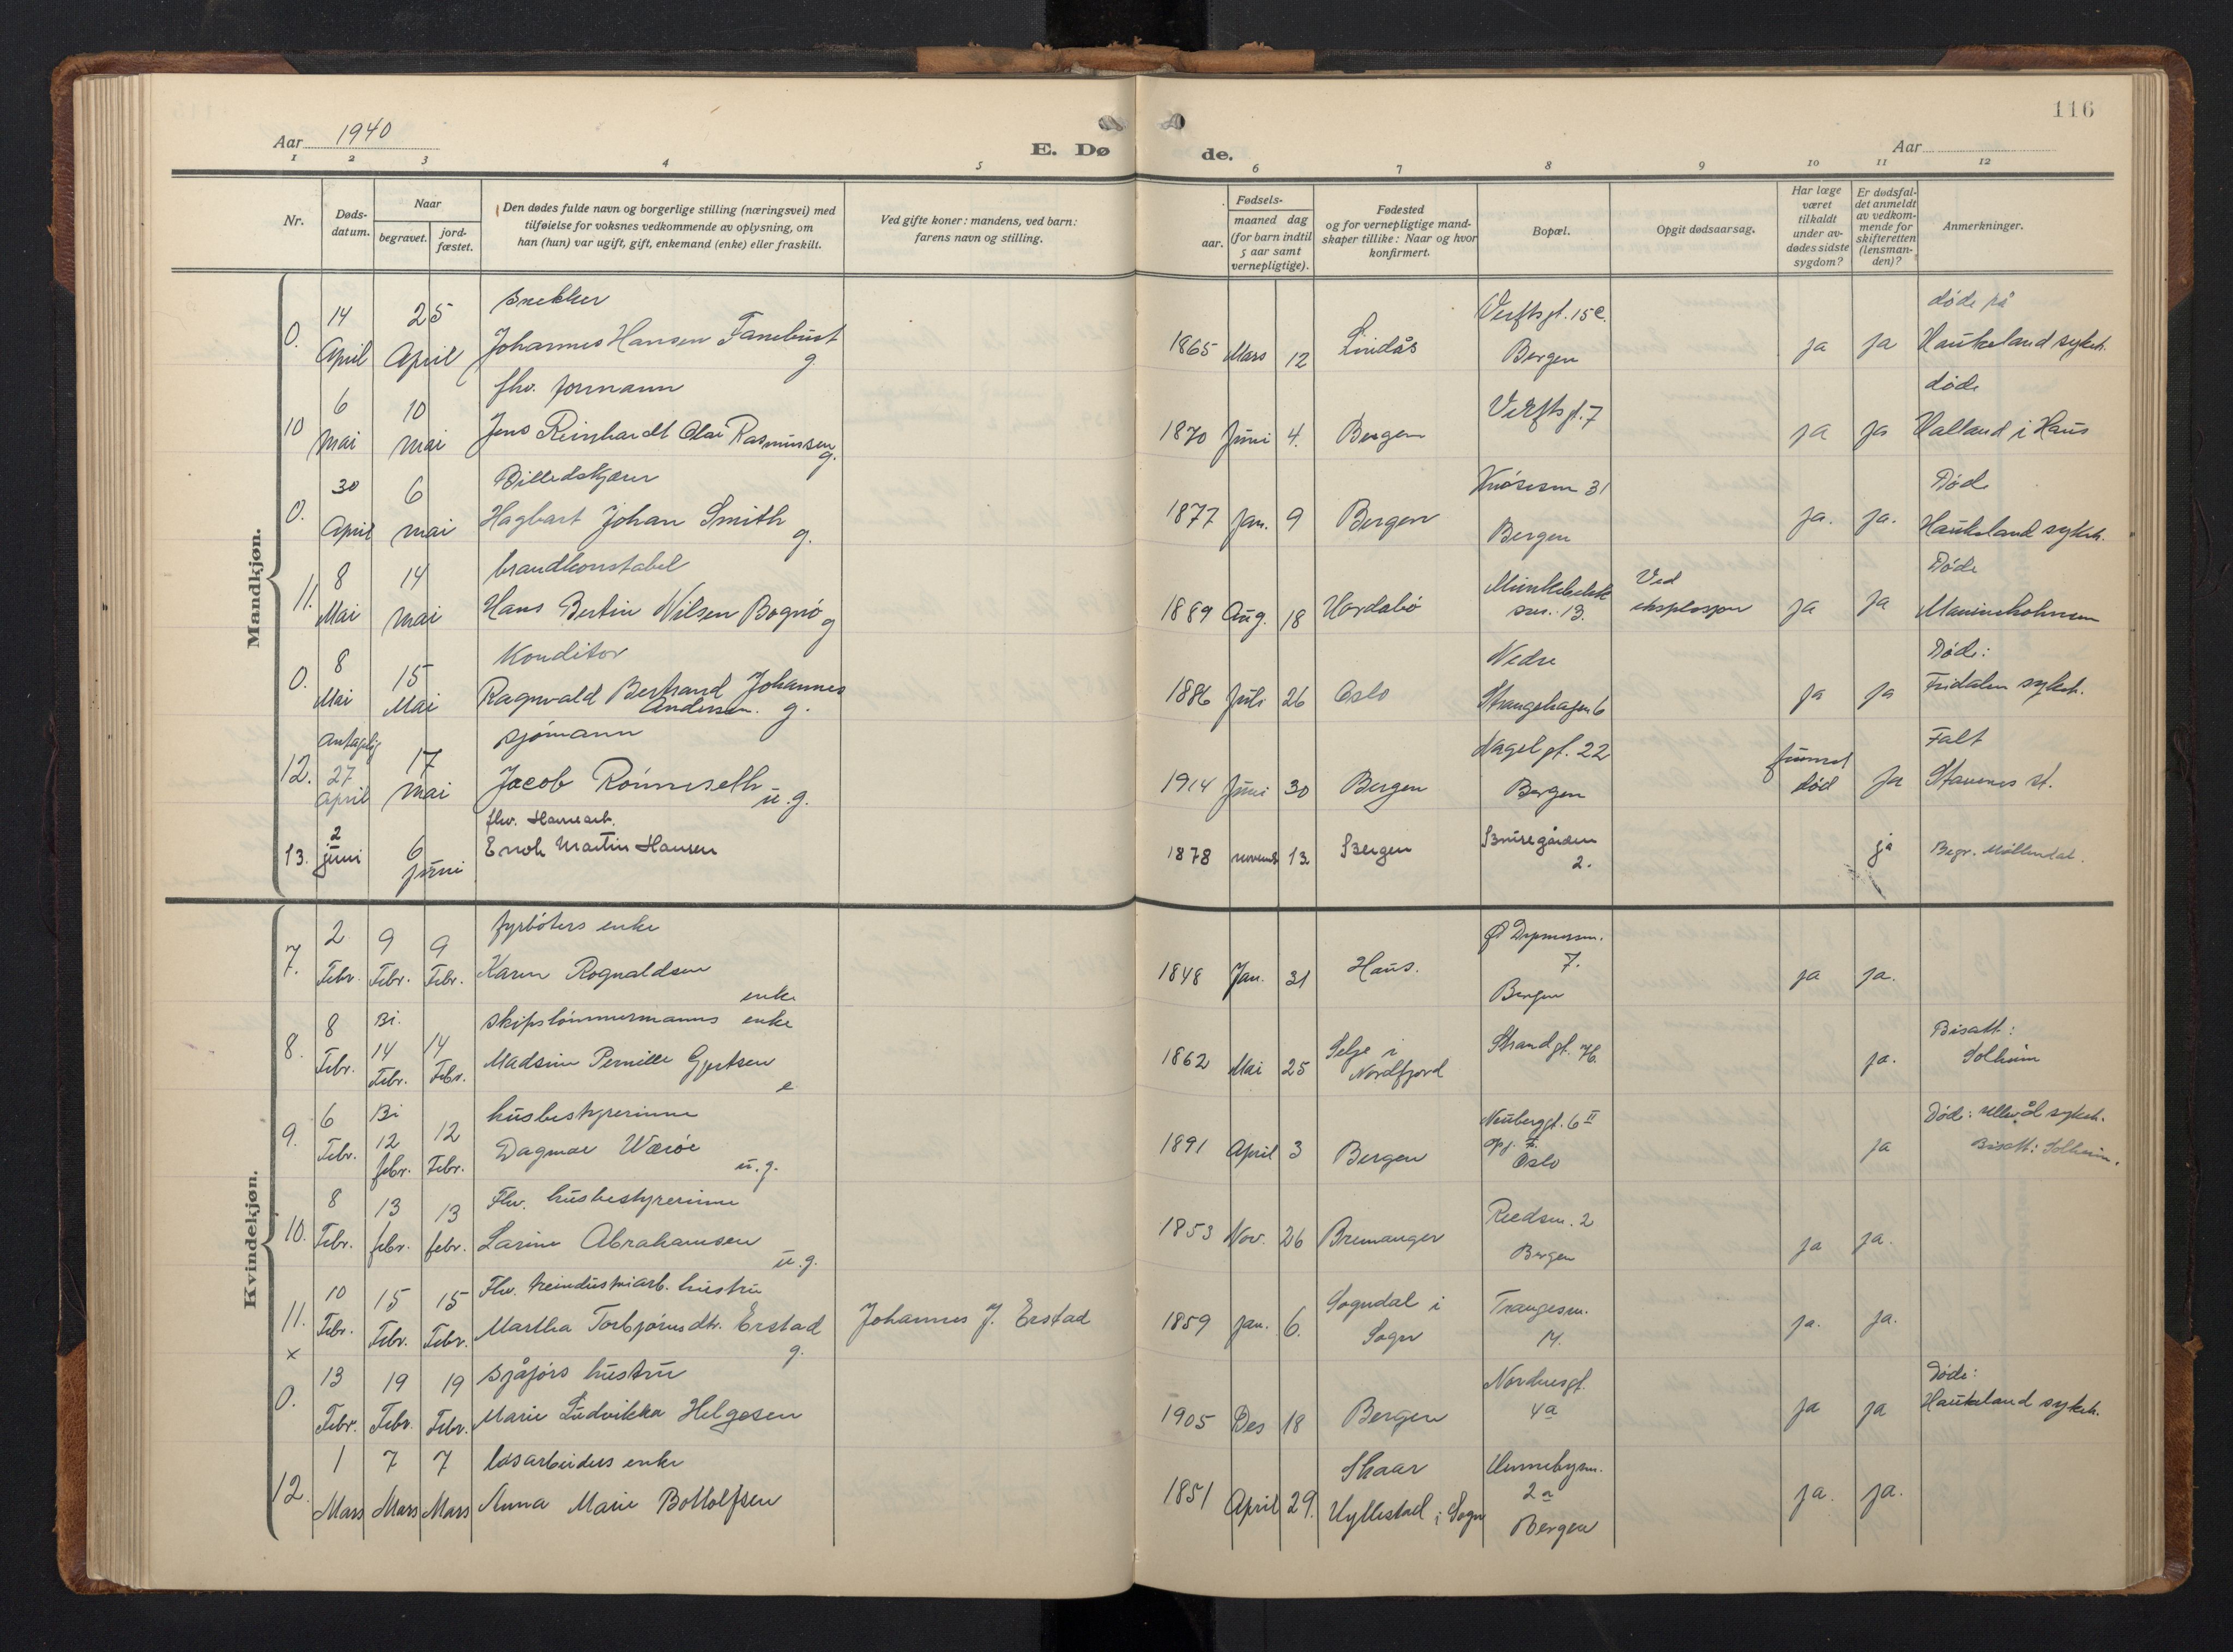 116
Aar 1940
E. Dø de.
Aar
1 2 3 4 5 6 7 8 9 10 11 12
Nr.
Døds-
datum.
Naar
begravet.
jord-
fæstet.
Den dødes fulde navn og borgerlige stilling (næringsvei) med
tilføielse for voksnes vedkommende av oplysning, om
han (hun) var ugift, gift, enkemand (enke) eller fraskilt.
Ved gifte koner: mandens, ved barn:
farens navn og stilling.
Fødsels-
aar.
maaned dag
(for barn indtil
5 aar samt
vernepligtige).
Fødested
og for vernepligtige mand-
skaper tillike: Naar og hvor
konfirmert.
Bopæl.
Opgit dødsaarsag.
Har læge
været
tilkaldt
under av-
dødes sidste
sygdom?
Er dødsfal-
det anmeldt
av vedkom-
mende for
skifteretten
(lensman-
den)?
Anmerkninger.
Mandkjøn.
14 25 snekker Verftsgt. 15 døde på
0. April April Johannes Hansen Fanebust g. 1865 Mars 12 Lindås Bergen ja ja Haukeland sykeh.
6 10 fhv. formann Verftsgt. 7 døde
10 Mai Mai Jens Reinhardt Olai Rasmussen g. 1870 Juni 4. Bergen ja ja Halland i Haus
30 6 Billedskjærer 31 Død
0. April Mai Hagbart Johan Smith g. 1877 Jan. 9 Bergen Bergen ja. ja. Haukeland sykeh.
8 14 brandkonstabel Ved Døde
11. Mai Mai Hans Bertin Nilsen Bognø g 1889 Aug. 18 Hordabø 13. eksplosjon ja ja Marineholmen
8 15 Konditor Nedre Døde:
0. Mai Mai Ragnvald Bertrand Johannes
Andersen. g. 1886 Juli 26 Oslo Strangehagen 6 ja ja Fridalen sykeh.
antagelig 17 sjømann Nagelgt. 22 funnet Falt
12. 27
April Mai Jacob Rønneseth u. g. 1914 Juni 30 Bergen Bergen død ja Stavenes st.
2 fhv. Havnearb.
13. juni 6
juni Enok Martin Hansen 1878 novemb 13 Bergen Smøregården
2. ja Begr. Møllendal.
Kvindekjøn.
2 9 9 fyrbøters enke
7. Febr. Febr. Febr. Karen Rognaldsen 1848 Jan. 31 Haus. 7. ja ja.
enke Bergen
8 Bi. skipstømmermanns enke Bisatt:
8. Febr. 14
Febr. 14
Febr. Madsine Pernille Gjertsen e 1862 Mai 25 Selje i
Nordfjord Strandgt. ja. Solheim
6 Bi husbestyrerinne Neuberggt. 6 II Død: Ullevål sykeh.
9. Febr. 12
febr. 12
Febr. Dagmar Wærøe u. g. 1891 April 3 Bergen Oslo ja Bisatt: Solheim.
8 13 13 Fhv. husbestyrerinne
10. Febr. febr. febr. Larine Abrahamsen u. g. 1853 Nov. 26 Bremanger Reedsm. 2
Bergen ja ja.
10 15 15 Fhv. treindustriarb. hustru
11. Febr. Febr. Febr. Martha Torbjørnsdtr. Erstad g. Johannes J. Erstad 1859 Jan. 6. Sogndal i
Sogn Trangesm.
14. ja. ja.
x
13 19 19 sjåførs hustru Nordnesgt. Døde:
0. Febr. Febr. Febr. Marie Ludvikka Helgesen 1905 Des 18 Bergen 4a ja ja Haukeland sykeh.
1 7 7 løsarbeiders enke Skaar
12. Mars Mars Mars Anna Marie Bottolfsen 1851 April 29. Hyllestad i Sogn 2a
Bergen ja. ja.